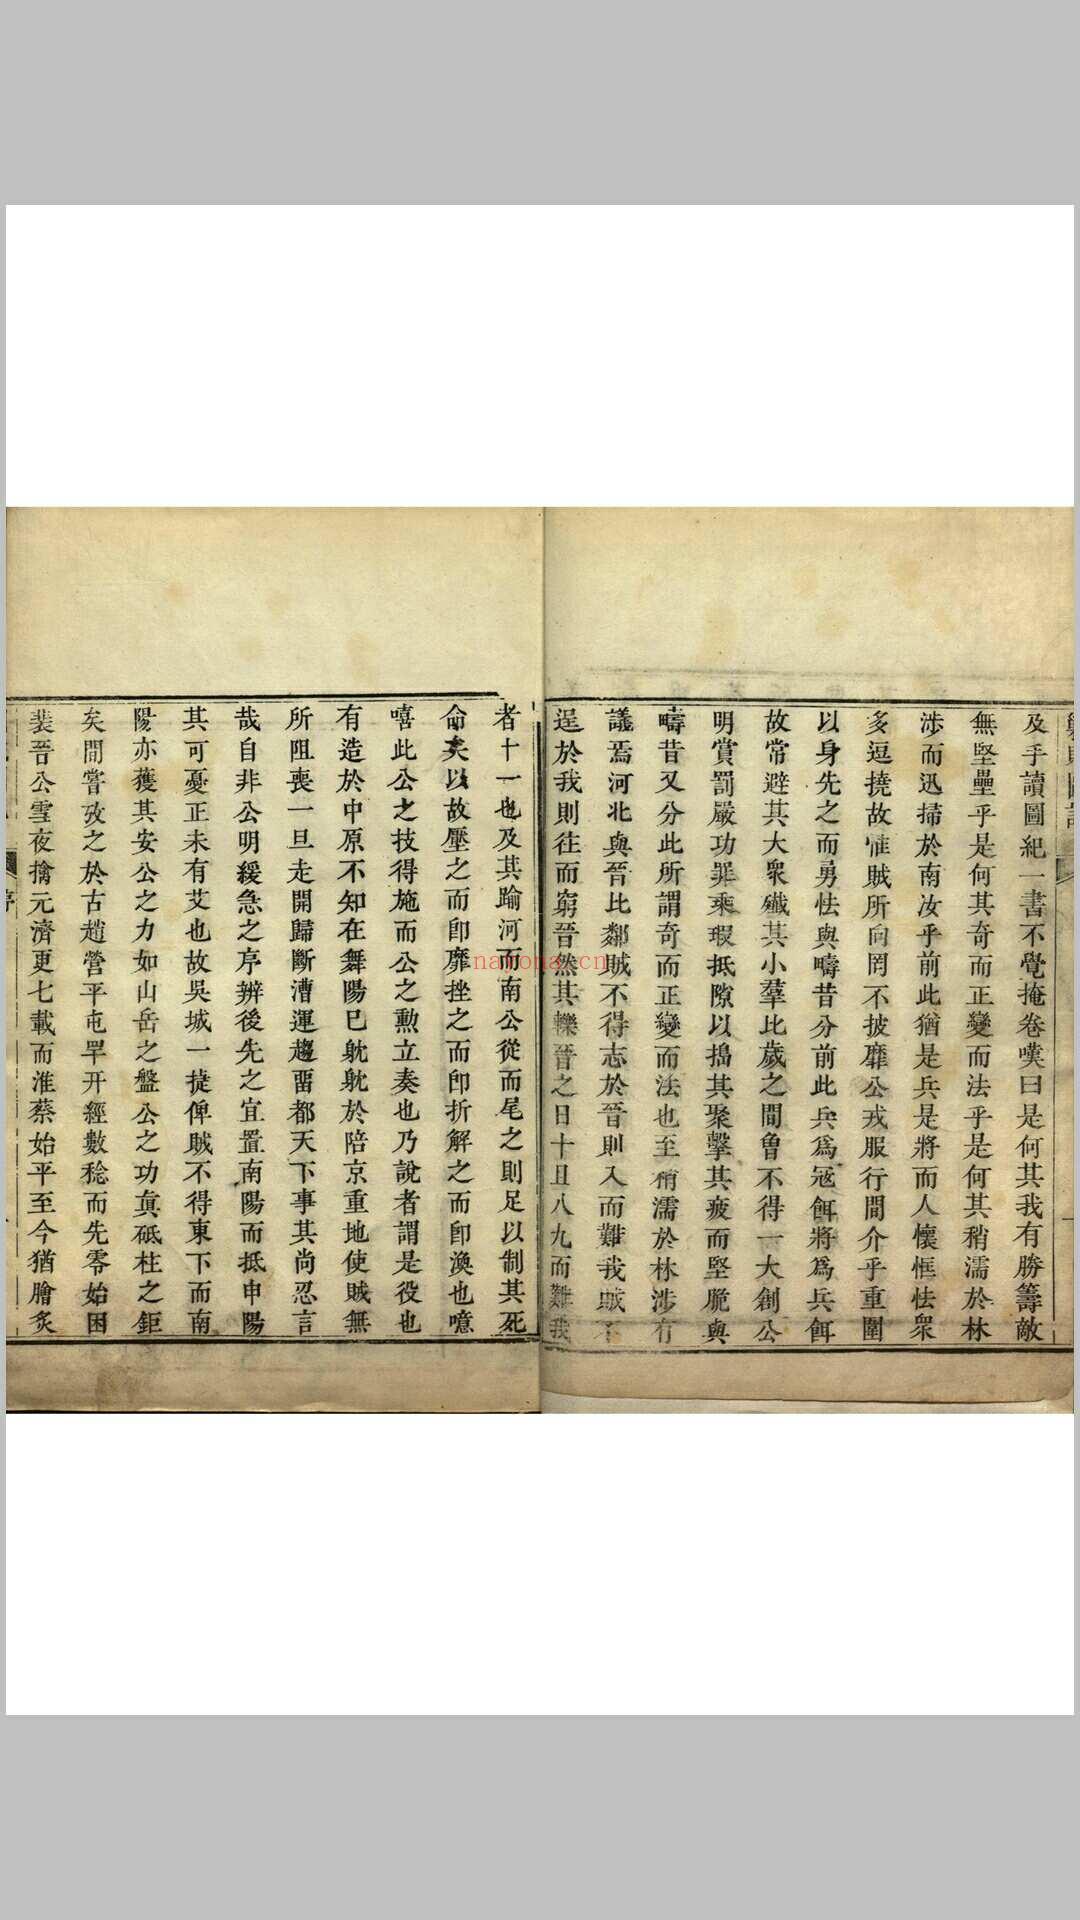 及乎讀圖紀一書不覺掩卷嘆曰是何其我有勝籌敵
無堅壘乎是何其奇而正變而法乎是何其稍濡於林
涉而迅掃於南汝乎前此猶是兵是將而人懷恇怯衆
多逗撓故惟賊所向罔不披靡公戎服行間介乎重圍
以身先之而勇怯與疇昔分前此兵爲寇餌將爲兵餌
故常避其大衆殲其小羣比歲之間曾不得一大創公
明賞罰嚴功罪乘瑕抵隙以搗其聚擊其疲而堅脆與
疇昔又分此所謂奇而正變而法也至稍濡於林涉有
議焉河北與晉比鄰賊不得志於晉則入而難我賊不
逞於我則往而窮晉然其轢晉之日十且八九而難我
者十一也及其踰河而南公從而尾之則足以制其死
命矣以故壓之而卽靡挫之而卽折解之而卽渙也噫
嘻此公之技得施而公之勳立奏也乃說者謂是役也
有造於中原不知在舞陽已躭躭於陪京重地使賊無
所阻喪一旦走開歸斷漕運趨留都天下事其尚忍言
哉自非公明緩急之序辨後先之宜置南陽而抵申陽
其可憂正未有艾也故吳城一捷俾賊不得東下而南
陽亦獲其安公之力如山岳之盤公之功真砥柱之鉅
矣間嘗攷之於古趙營平屯罕开經數稔而先零始困
裴晉公雪夜擒元濟更七載而淮蔡始平至今猶膾炙
序
nayona.cn